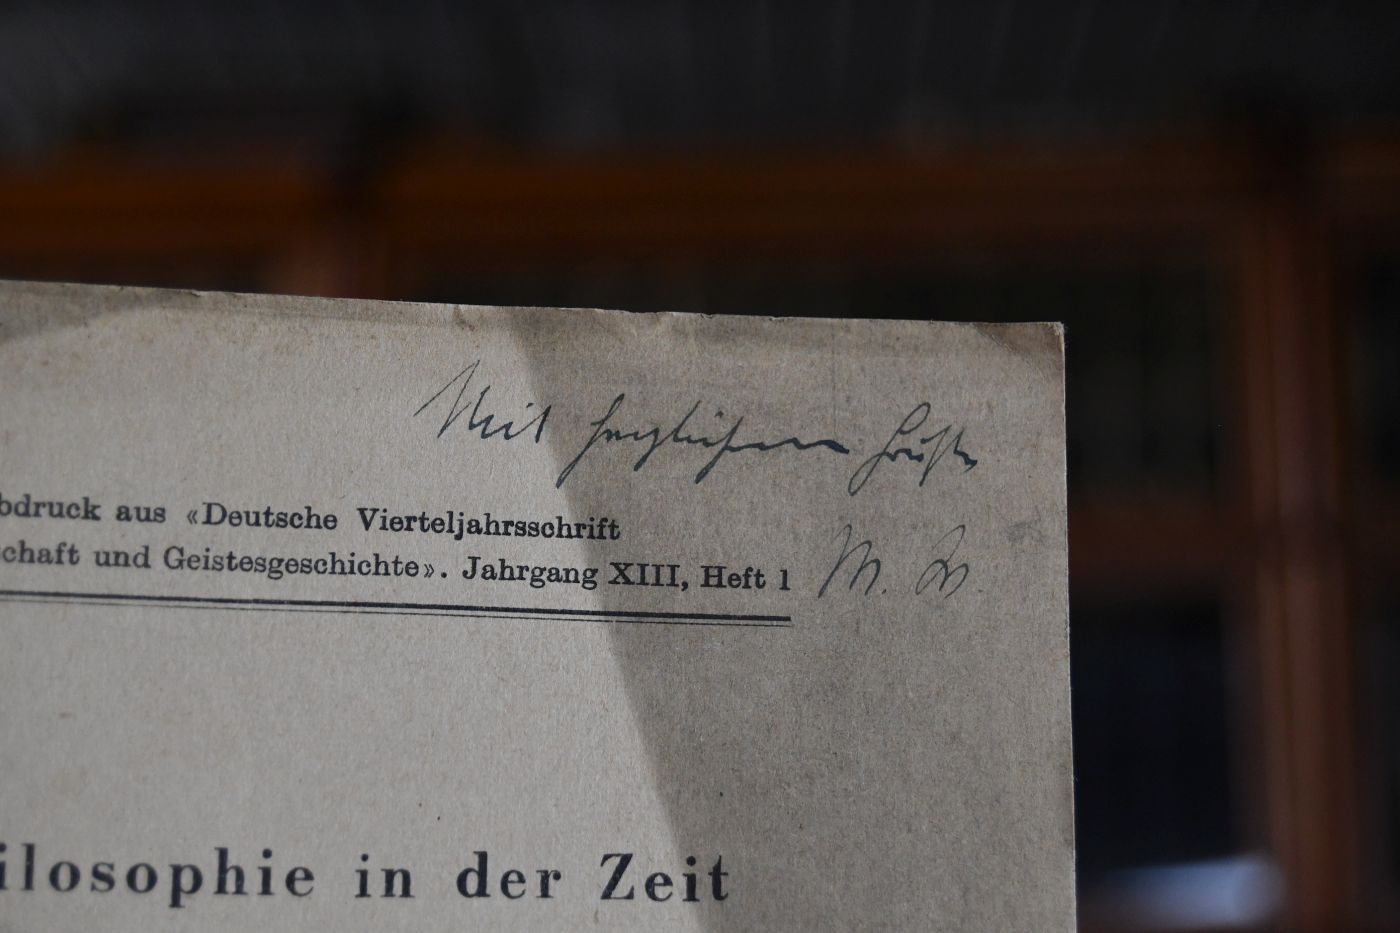 Mit herzlichem Gruß
bdruck aus «Deutsche Vierteljahrsschrift
schaft und Geistesgeschichte». Jahrgang XIII, Heft 1
M.
ilosophie in der Zeit